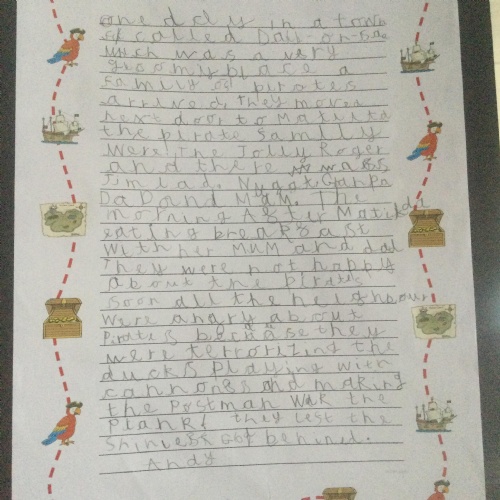 one ddy in a town
of called Dall-on-Sde
which was a very
gloomy place a
family of pirates
arrived, they moved
next door to Matilda
the pirate family
were! The Jolly Roger
and there
Jim lad, Nugget, Granpa
Dad and Mam. The
morning After Matilda
eating breakfast
with her MUM and dad
They were not happy
about the pirates
soon all the neighbours
were angry about
Pirates because they
were terrorizing the
ducks Playing with
cannons and making
the Postman walk the
Plank! they left the
Shiniest Got behined.
Andy